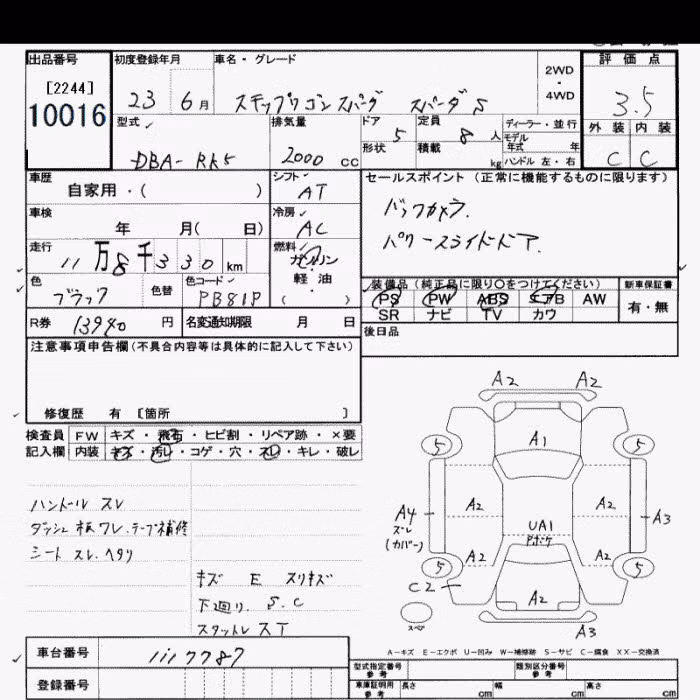 出品番号 初度登録年月 車名・グレード 2WD・4WD 評価点
[2244]
10016
23 6月 ステップワゴンスパーダ スパーダS 3.5
型式 排気量 ドア 5 定員 8人 ディーラー・並行 外装 内装
形状 積載 kg モデル年式 年
DBA-RK5 2000cc ハンドル 左・右 C C
車歴 シフト セールスポイント (正常に機能するものに限ります)
自家用・( ) AT
バックカメラ.
車検 冷房
年 月( 日) AC
パワースライドドア.
走行 燃料
11万8千330km ガソリン・軽油
( )
色 色替 色コード 装備品(純正品に限り〇をつけてください) 新車保証書
ブラック PB81P PS PW ABS エアB AW 有・無
SR ナビ TV カワ
R券 13940円 名変通知期限 月 日 後日品
注意事項申告欄(不具合内容等は具体的に記入して下さい)
修復歴 有 [箇所 ]
検査員 FW キズ・飛石・ヒビ割・リペア跡・×要
記入欄 内装 キズ・汚レ・コゲ・穴・スレ・キレ・破レ
ハンドル スレ
ダッシュ板ワレ.テープ補修
シート スレ.ヘタリ
キズ E スリキズ
下廻り. S.C
スタットレス T
A2 A2
5 A1 5
A4 スレ(カバー) A2 A2 A3
UA1
5 A2 A2 5
C2 A2
スペア A3
A-キズ E-エクボ U-凹み W-補修跡 S-サビ C-腐食 XX-交換済
車台番号 1117787
登録番号
型式指定番号 参考 類別区分番号 参考
車庫証明用 参考 長さ cm 幅 cm 高さ cm